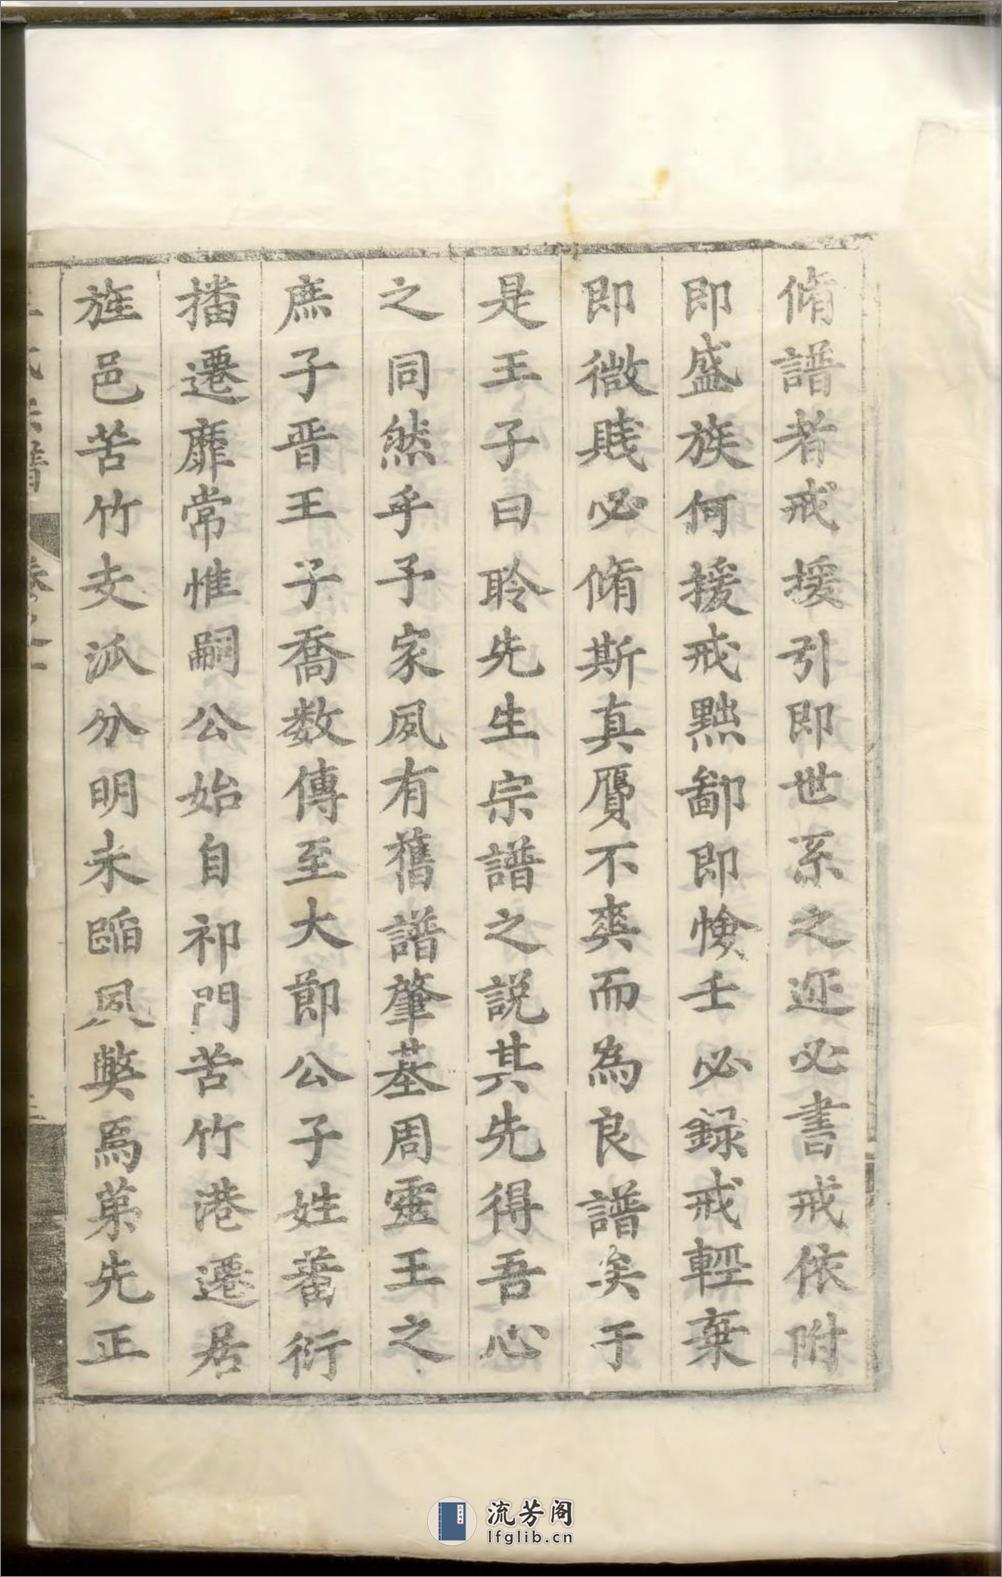 脩譜者戒援引即世系之迩必書戒依附
即盛族何援戒黜鄙即憸壬必録戒輕棄
即微賎必脩斯真贋不爽而為良譜矣于
是王子曰聆先生宗譜之説其先得吾心
之同然乎予家夙有舊譜肇基周靈王之
庶子晋王子喬数傳至大郎公子姓蕃衍
播遷靡常惟嗣公始自祁門苦竹港遷居
旌邑苦竹支派分明未臨夙獘焉菓先正
氏宗譜 卷之一
流芳阁
lfglib.cn